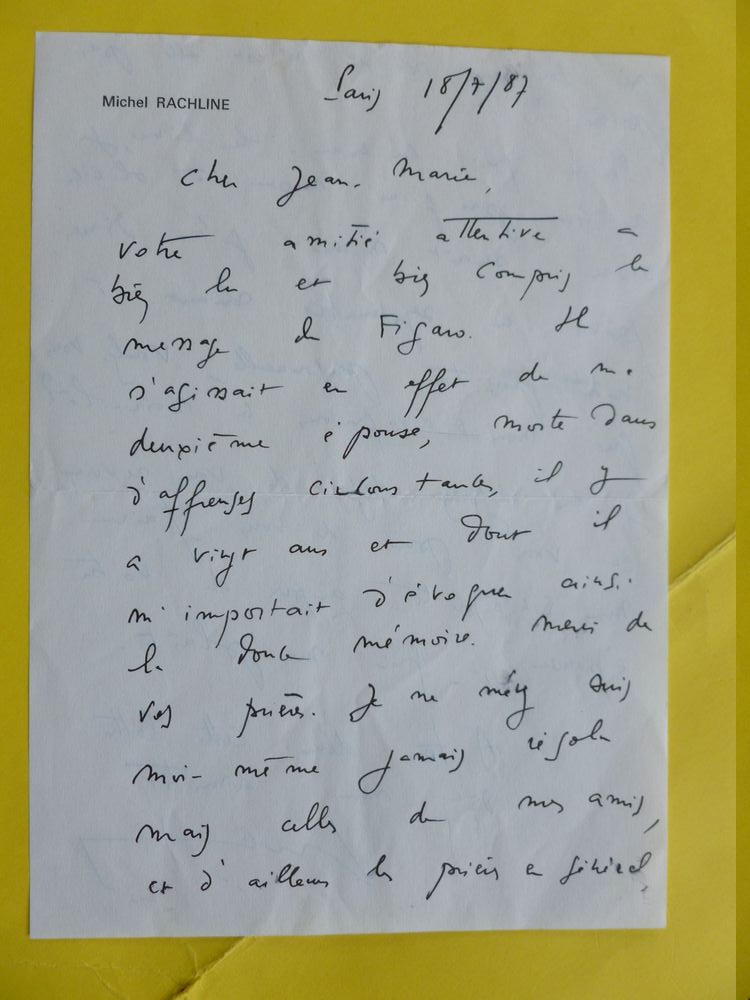 Michel RACHLINE
Paris 18/7/87
Cher Jean-Marie,
votre amitié attentive a
bien lu et bien compris le
message du Figaro. Il
s'agissait en effet de ma
deuxième épouse, morte dans
d'affreuses circonstances, il y
a vingt ans et dont il
m'importait d'évoquer ainsi
la douce mémoire. Merci de
vos prières. Je ne m'y suis
moi-même jamais résolu
mais celles de mes amis,
et d'ailleurs les prières en général,